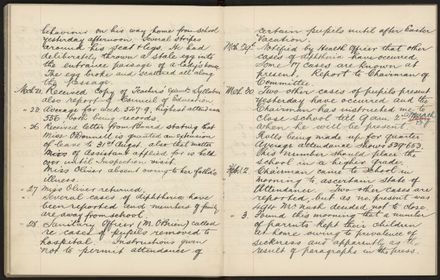 behaviour on his way home from school
yesterday afternoon. Several stripes
around his seat & legs. He had
deliberately thrown a stale egg into
the entrance passage of a lady's house.
The egg broke and scattered all along
the passage.
Received Copy of Teachers' Syllabus
also report of Council of Education.
Average for week 527.9, highest attendance
556 both being records.
26 Received letter from Board stating that
Miss is granted extension
of leave to 31st Augst. also that matter
of Assistant applied for is held
over until Inspection visit.
Miss Oliver absent owing to her father's
illness.
27 Miss Oliver returned.
Several cases of diphtheria have
been reported and members of family
are away from school.
28 Sanitary Officer (Mr O'Brien) called
re cases of pupils removed to
hospital. Instructions given
not to permit attendance of
certain pupils until after Easter
Vacation.
Mch 29 Notified by Health Officer that other
cases of diphtheria have occurred.
Some 17 cases are known at
present. Report to Chairman of
Committee.
Mch 30 Two other cases of pupils present
yesterday have occurred and the
Chairman has instructed me to
close school till 9 am
when he will be present.
Rolls being made up for quarter
Average Attendance shows
This number should place the
school in a higher Grade.
Chairman came to school in
morning to ascertain state of
Attendance. Two other cases are
reported, but as no. present was
decided not to close.
3 Found this morning that a number
of parents kept their children
at home owing to prevalence of
sickness and apparently as the
result of paragraphs in the press.